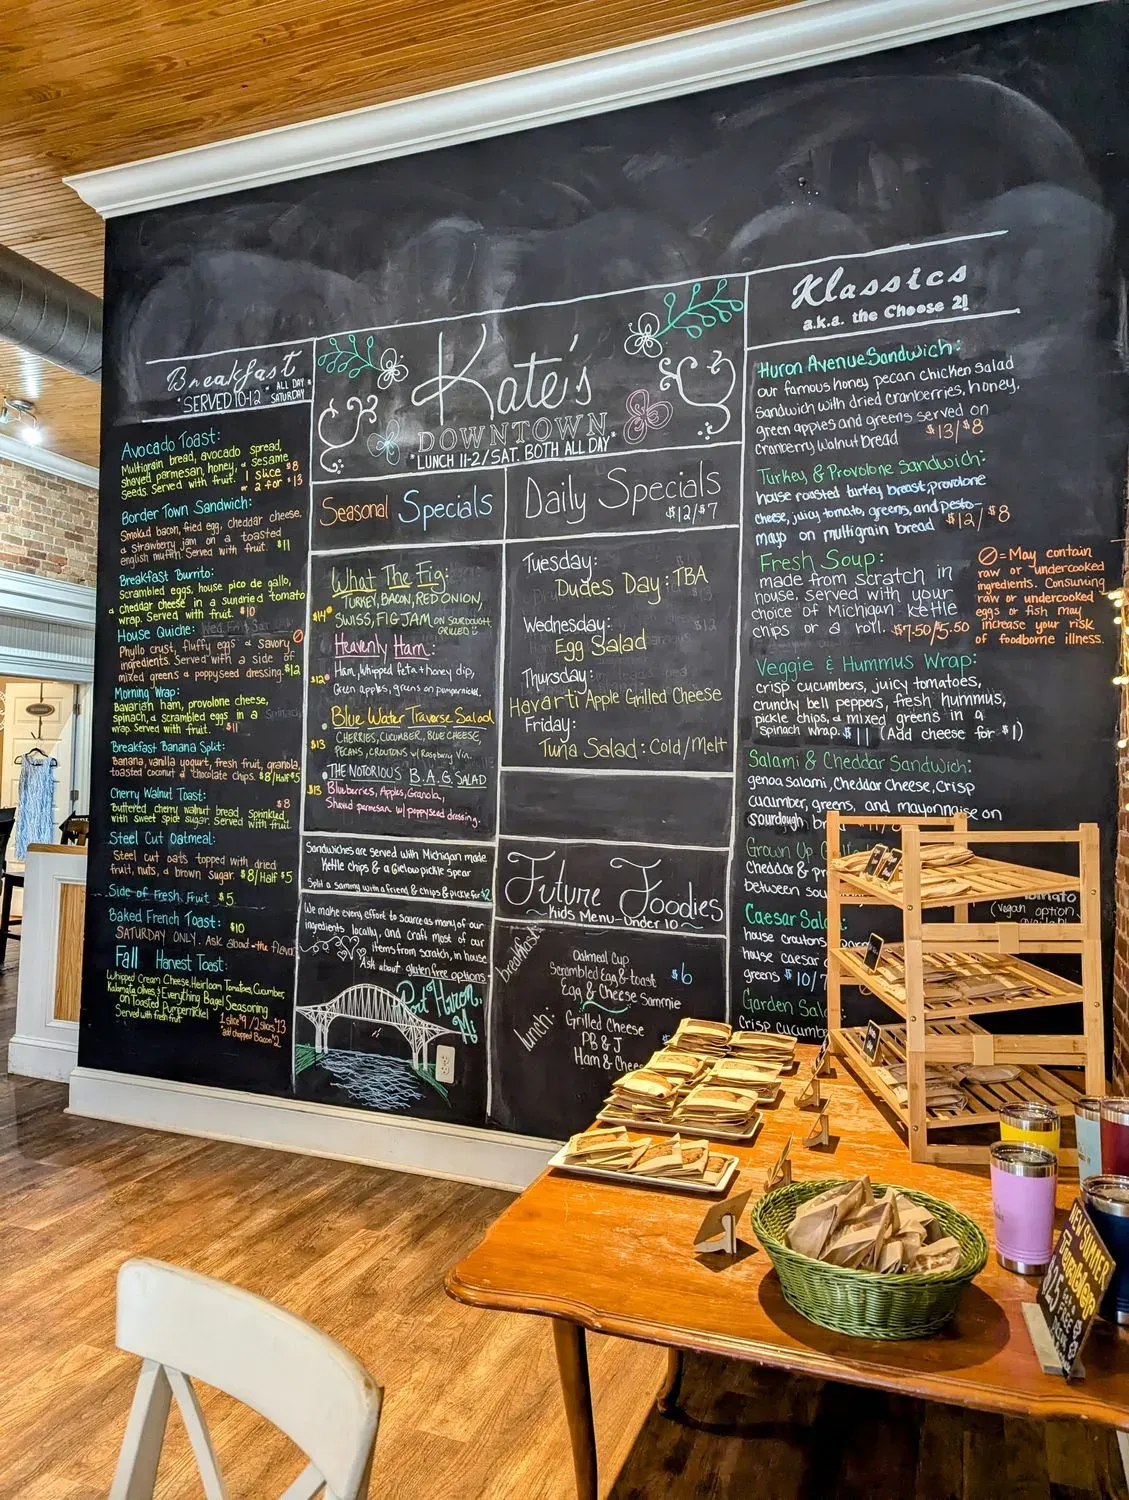 Breakfast
*SERVED 10-12 * ALL DAY SATURDAY*
Avocado Toast:
Multigrain bread, avocado spread,
shaved parmesan, honey, & sesame
seeds. Served with fruit. 1 slice $8
or 2 for $13
Border Town Sandwich:
Smoked bacon, fried egg, cheddar cheese,
& strawberry jam on a toasted
english muffin. Served with fruit. $11
Breakfast Burrito:
Scrambled eggs, house pico de gallo,
& cheddar cheese in a sundried tomato
wrap. Served with fruit. $10
House Quiche:
Phyllo crust, fluffy eggs & savory
ingredients. Served with a side of
mixed greens & poppyseed dressing. $12
Morning Wrap:
Bavarian ham, provolone cheese,
spinach, & scrambled eggs in a spinach
wrap. Served with fruit. $11
Breakfast Banana Split:
Banana, vanilla yogurt, fresh fruit, granola,
toasted coconut & chocolate chips. $8/Half $5
Cherry Walnut Toast: $8
Buttered cherry walnut bread sprinkled
with sweet spice sugar. Served with fruit.
Steel Cut Oatmeal:
Steel cut oats topped with dried
fruit, nuts, & brown sugar. $8/Half $5
Side of Fresh Fruit $5
Baked French Toast: $10
SATURDAY ONLY. Ask about the flavor
Fall Harvest Toast:
Whipped Cream Cheese, Heirloom Tomatoes, Cucumber,
Kalamata Olives, & Everything Bagel Seasoning
on Toasted Pumpernickel
Served with fresh fruit 1 slice $9/2 slices $13
add chopped Bacon $2
Kate's
DOWNTOWN
*LUNCH 11-2/SAT. BOTH ALL DAY*
Seasonal Specials
What The Fig:
TURKEY, BACON, RED ONION,
$14 SWISS, FIG JAM ON SOURDOUGH,
GRILLED
Heavenly Ham:
Ham, whipped feta + honey dip,
$12 Green apples, greens on pumpernickel.
Blue Water Traverse Salad
CHERRIES, CUCUMBER, BLUE CHEESE,
$13 PECANS, CROUTONS w/ Raspberry Vin.
THE NOTORIOUS B.A.G. SALAD
$13 Blueberries, Apples, Granola,
Shaved parmesan w/ poppyseed dressing.
Sandwiches are served with Michigan made
Kettle chips & a Gielow pickle spear
Split a sammy with a friend & chips & pickle for $2
We make every effort to source as many of our
ingredients locally, and craft most of our
items from scratch, in house
Ask about gluten free options
Port Huron,
Mi
Daily Specials
$12/$7
Tuesday:
Dudes Day: TBA
Wednesday:
Egg Salad
Thursday:
Havarti Apple Grilled Cheese
Friday:
Tuna Salad: Cold/Melt
Future Foodies
~ Kids Menu - Under 10 ~
breakfast:
Oatmeal Cup
Scrambled Egg & toast $6
Egg & Cheese Sammie
lunch:
Grilled Cheese
PB & J
Ham & Cheese
Klassics
a.k.a. the Choose 2!
Huron Avenue Sandwich:
our famous honey pecan chicken salad
sandwich with dried cranberries, honey,
green apples and greens served on
cranberry walnut bread $13/$8
Turkey & Provolone Sandwich:
house roasted turkey breast, provolone
cheese, juicy tomato, greens, and pesto-
mayo on multigrain bread $12/$8
Fresh Soup:
made from scratch in
house. served with your
choice of Michigan kettle
chips or a roll. $7.50/5.50
=May contain
raw or undercooked
ingredients. Consuming
raw or undercooked
eggs or fish may
increase your risk
of foodborne illness.
Veggie & Hummus Wrap:
crisp cucumbers, juicy tomatoes,
crunchy bell peppers, fresh hummus,
pickle chips, & mixed greens in a
spinach wrap. $11 (Add cheese for $1)
Salami & Cheddar Sandwich:
genoa salami, Cheddar Cheese, crisp
cucumber, greens, and mayonnaise on
sourdough
Grown Up
Cheddar & pr
between sou
(vegan option
Caesar Sala
house croutons
house caesar
greens $10/7
Garden Sala
Crisp cucumbe
NEW SUMMER
Travelers
$25